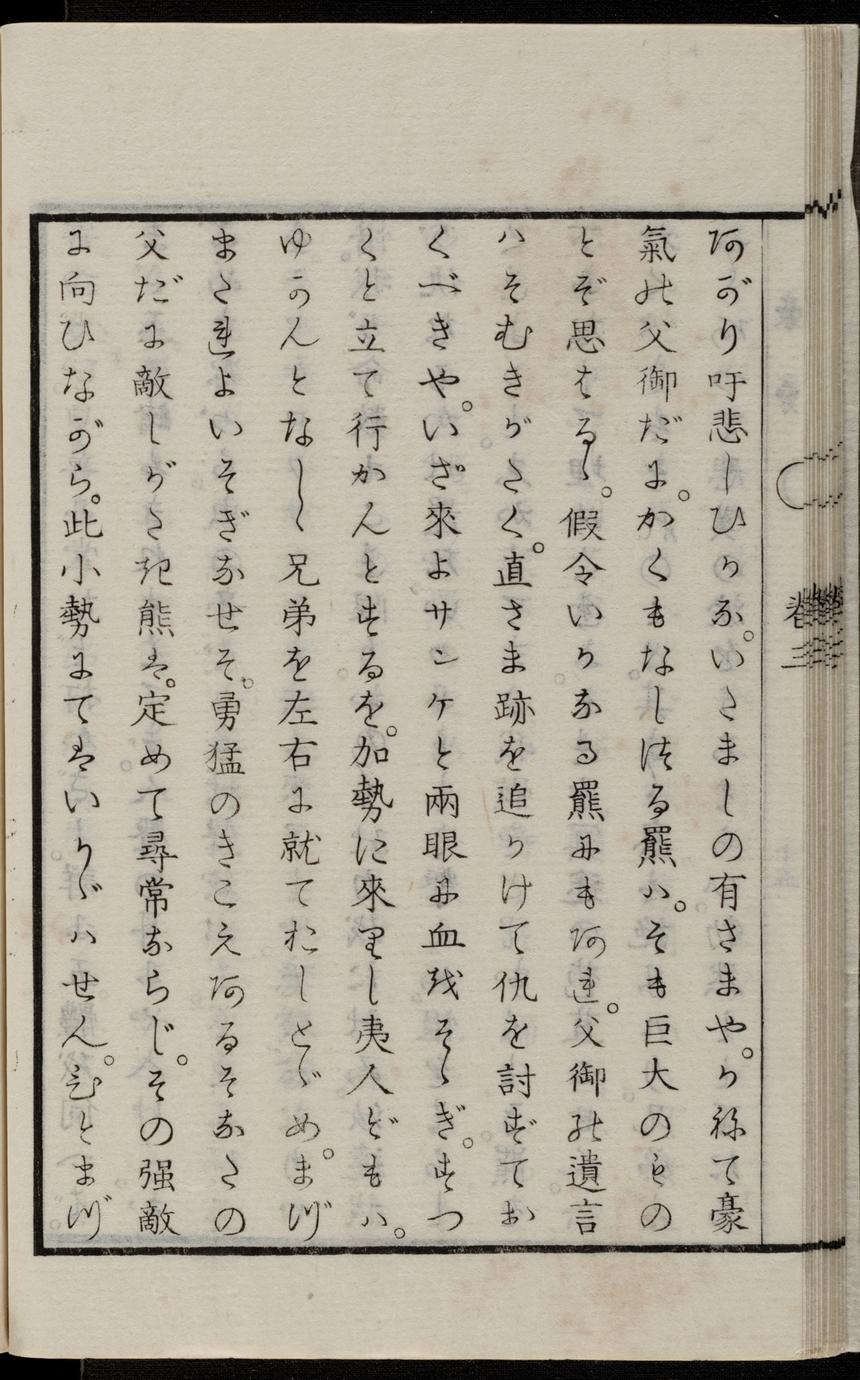 あがり吁悲しひかな。いたましの有さまや。かねて豪
氣の父御だに。かくもなしぬる羆ハ。そも巨大のもの
とぞ思はるゝ。假令いかなる羆にもあれ。父御の遺言
ハそむきがたく。直さま跡を追かけて仇を討ずてお
くべきや。いざ來よサンケと兩眼に血をそゝぎ。すつ
くと立て行かんとするを。加勢に來りし夷人どもハ。
ゆかんとなしゝ兄弟を左右に就ておしとゞめ。まづ
またれよいそぎなせそ。勇猛のきこえあるそなたの
父だに敵しがたき熊は。定めて尋常ならじ。その强敵
に向ひながら。此小勢にてはいかゞハせん。ひとまづ
卷三